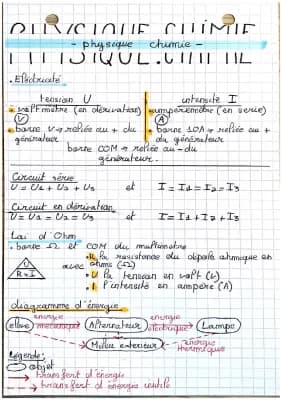 PHYSIQUE.CHIMIE
- physique chimie -
PHYSIQUE.CHIMIE
. Electricité
tension U
intensité I
voltmètre (en dérivation)
ampèremètre (en serie)
V
A
borne V → reliée au + du générateur
borne 10A → reliée au + du générateur
borne COM → reliée au - du générateur.
Circuit série
U = U1 + U2 + U3 et I = I1 = I2 = I3
Circuit en dérivation
U = U1 = U2 = U3 et I = I1 + I2 + I3
Loi d'Ohm
• borne Ω et COM du multimètre
U
R = I
avec
R la resistance du dipole ohmique en ohms (Ω)
U la tension en volt (V)
I l'intensité en ampère (A)
diagramme d'énergie
énergie mécanique
énergie électrique
Alternateur
Lampe
Milieu exterieur
énergie thermique
Légende:
objet
transfert d'énergie
transfert d'énergie inutile